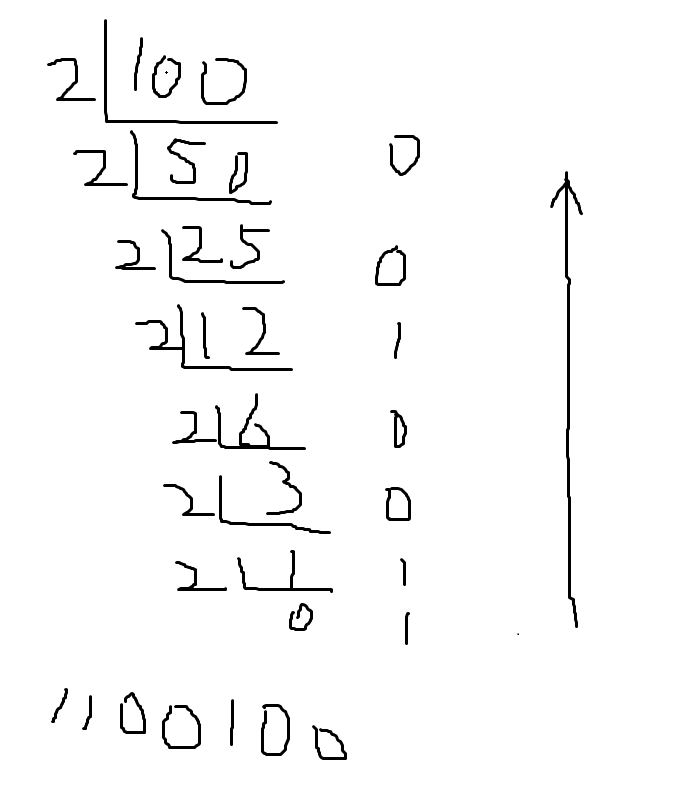 2 100
2 50 0
2 25 0
2 12 1
2 6 0
2 3 0
2 1 1
0 1
1100100